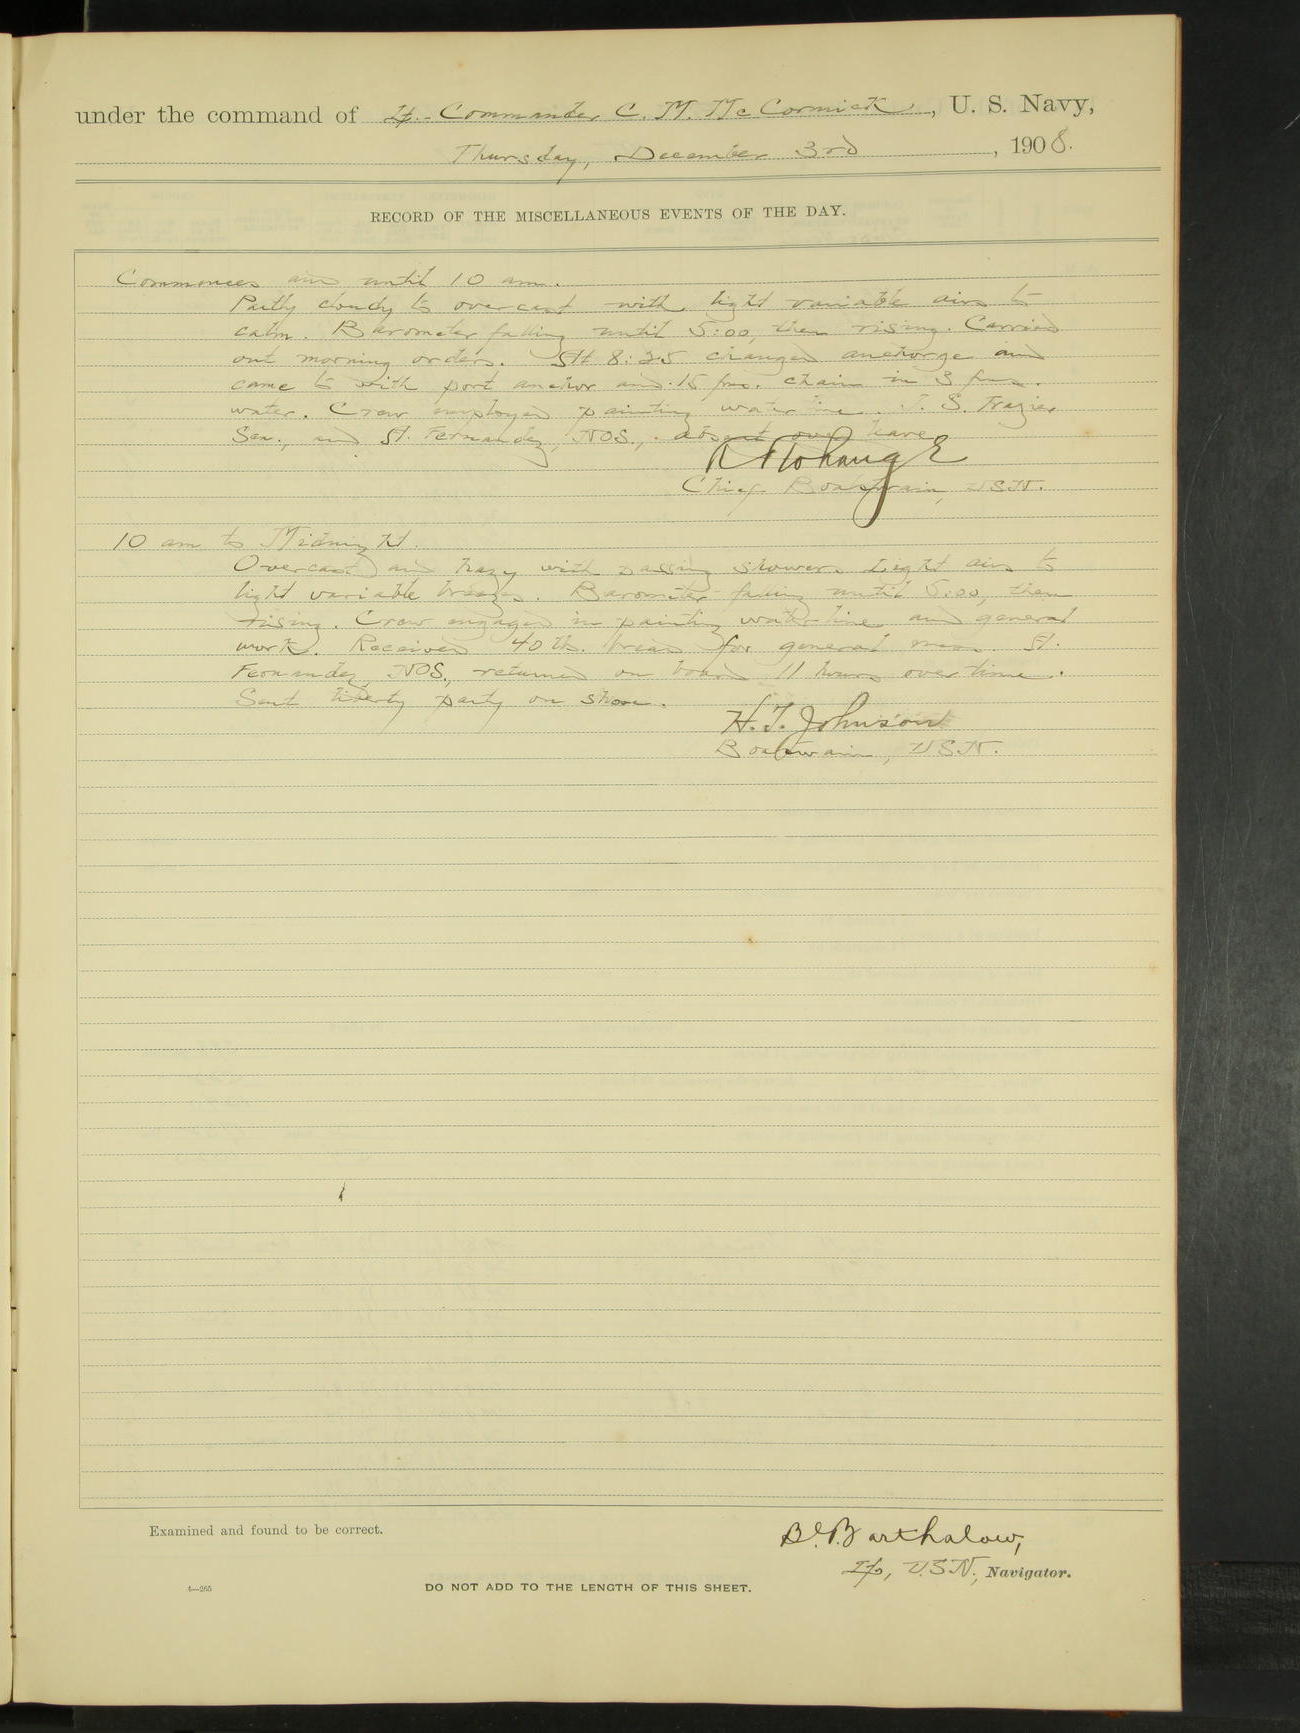 under the command of Lt. Commander C. M. McCormick, U. S. Navy,
Thursday, December 3rd, 1908.
RECORD OF THE MISCELLANEOUS EVENTS OF THE DAY.
Commences and until 10 am.
Partly cloudy to overcast with light variable airs to
calm. Barometer falling until 5:00, then rising. Carried
out morning orders. At 8:25 changed anchorge and
came to with port anchor and 15 fms. chain in 3 fms.
water. Crew employed painting water line. J. S. Frazier
Sea., and St. Fernandez, NOS., absent over leave.
Chief Boatswain, USN.
10 am to Midnight.
Overcast and hazy with passing showers Light airs to
light variable breezes. Barometer falling until 5:00, then
rising. Crew engaged in painting water line and general
work. Received 40 lb. bread for general mess. St.
Fernandez, NOS., returned on board 11 hours over time.
Sent liberty party on shore.
H. T. Johnson
Boatswain, USN.
Examined and found to be correct.
B. B. Barthalow,
Lt., USN., Navigator.
4—265
DO NOT ADD TO THE LENGTH OF THIS SHEET.